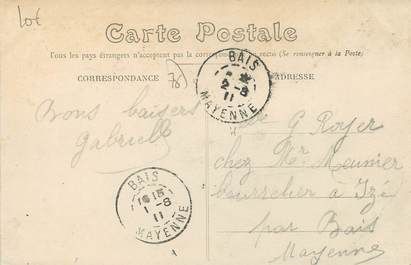 lot
Carte Postale
Tous les pays étrangers n'acceptent pas la correspondance au recto (Se renseigner à la Poste)
CORRESPONDANCE
ADRESSE
BAIS
2-8
11
MAYENNE
Bons baisers
Gabriel
G Royer
chez Mr Meunier
bourrelier à Izé
par Bais
Mayenne
BAIS
1-8
11
MAYENNE